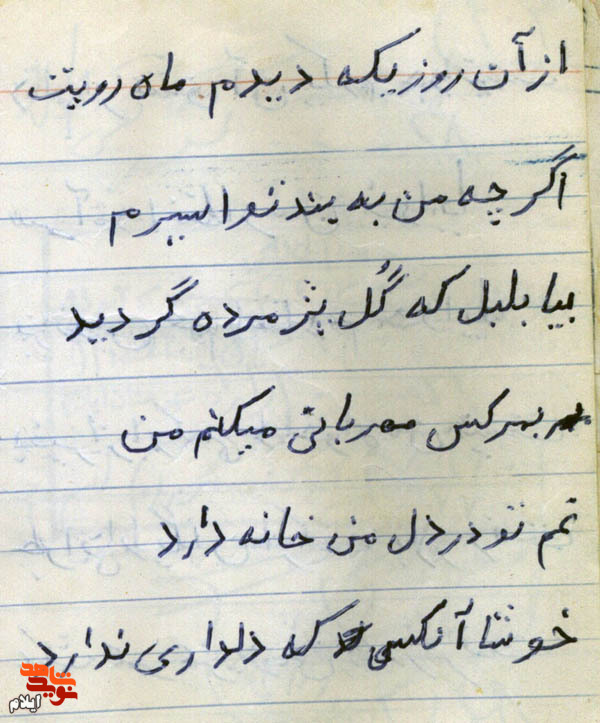 از آن روزیکه دیدم ماه رویت
اگر چه من به بند تو اسیرم
بیا بلبل که گُل پژمرده گردید
بهر کس مهربانی میکنم من
غم تو در دل من خانه دارد
خوشا آنکسی که دلداری ندارد
نوید شاهد
ایلام